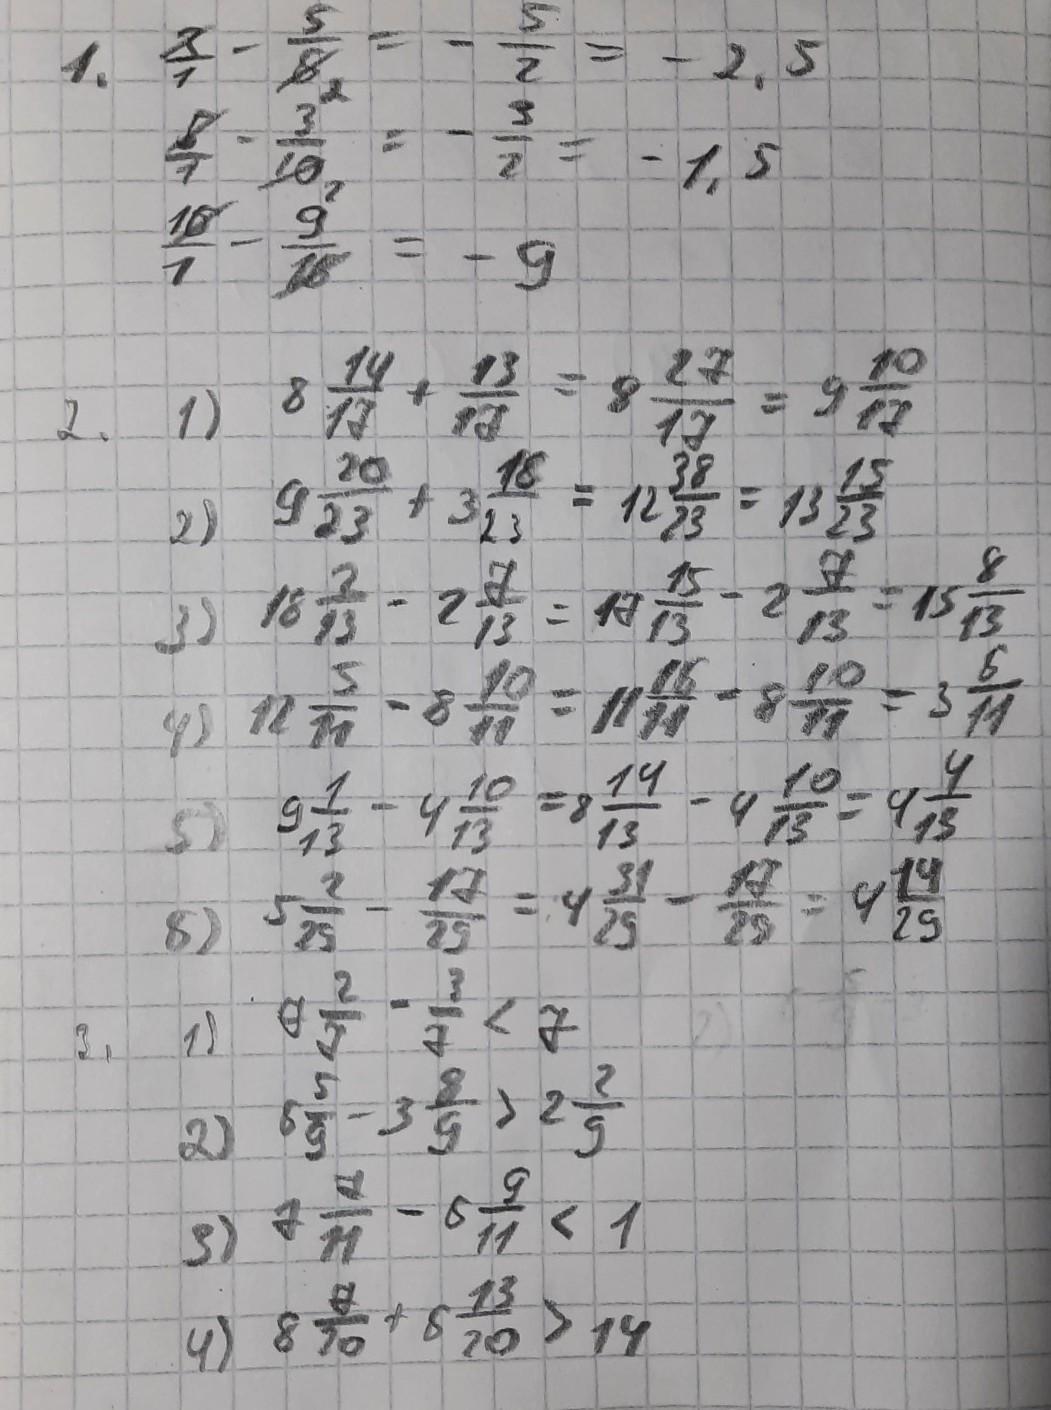 1. 3/1 - 5/6 2 = - 5/2 = - 2,5
5/1 - 3/10 2 = - 3/2 = - 1,5
10/1 - 9/10 = - 9
2. 1) 8 14/17 + 13/17 = 8 27/17 = 9 10/17
2) 9 20/23 + 3 18/23 = 12 38/23 = 13 15/23
3) 18 2/13 - 2 7/13 = 17 15/13 - 2 7/13 = 15 8/13
4) 12 5/11 - 8 10/11 = 11 16/11 - 8 10/11 = 3 6/11
5) 9 1/13 - 4 10/13 = 8 14/13 - 4 10/13 = 4 4/13
6) 5 2/29 - 17/29 = 4 31/29 - 17/29 = 4 14/29
3. 1) 7 2/7 - 3/7 < 7
2) 6 5/9 - 3 8/9 > 2 2/9
3) 7 7/11 - 6 9/11 < 1
4) 8 7/20 + 6 13/20 > 14